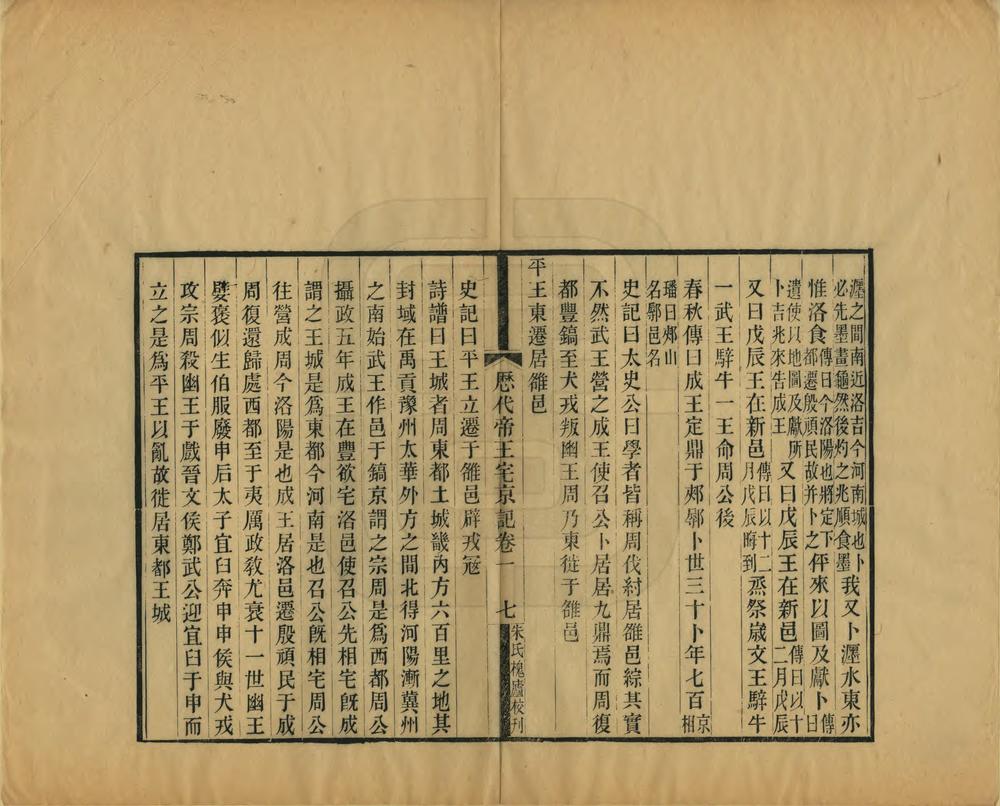 瀍之間南近洛吉今河南城也卜必先墨畫龜然後灼之兆順食墨我又卜瀍水東亦
惟洛食傳曰今洛陽也將定下都遷殷頑民故并卜之伻來以圖及獻卜傳曰
遣使以地圖及獻所卜吉兆來告成王又曰戊辰王在新邑傳曰以十二月戊辰
又曰戊辰王在新邑傳曰以十二月戊辰晦到烝祭歳文王騂牛
一武王騂牛一王命周公後
春秋傳曰成王定鼎于郟鄏卜世三十卜年七百京相
璠曰郟山名鄏邑名
史記曰太史公曰學者皆稱周伐紂居雒邑綜其實
不然武王營之成王使召公卜居居九鼎焉而周復
都豐鎬至犬戎叛幽王周乃東徙于雒邑
平王東遷居雒邑
歴代帝王宅京記卷一 七 朱氏槐廬校刊
史記曰平王立遷于雒邑辟戎寇
詩譜曰王城者周東都王城畿內方六百里之地其
封域在禹貢豫州太華外方之間北得河陽漸冀州
之南始武王作邑于鎬京謂之宗周是爲西都周公
攝政五年成王在豐欲宅洛邑使召公先相宅旣成
謂之王城是爲東都今河南是也召公旣相宅周公
往營成周今洛陽是也成王居洛邑遷殷頑民于成
周復還歸處西都至于夷厲政敎尤衰十一世幽王
嬖褒似生伯服廢申后太子宜臼奔申申侯與犬戎
攻宗周殺幽王于戲晉文侯鄭武公迎宜臼于申而
立之是爲平王以亂故徙居東都王城